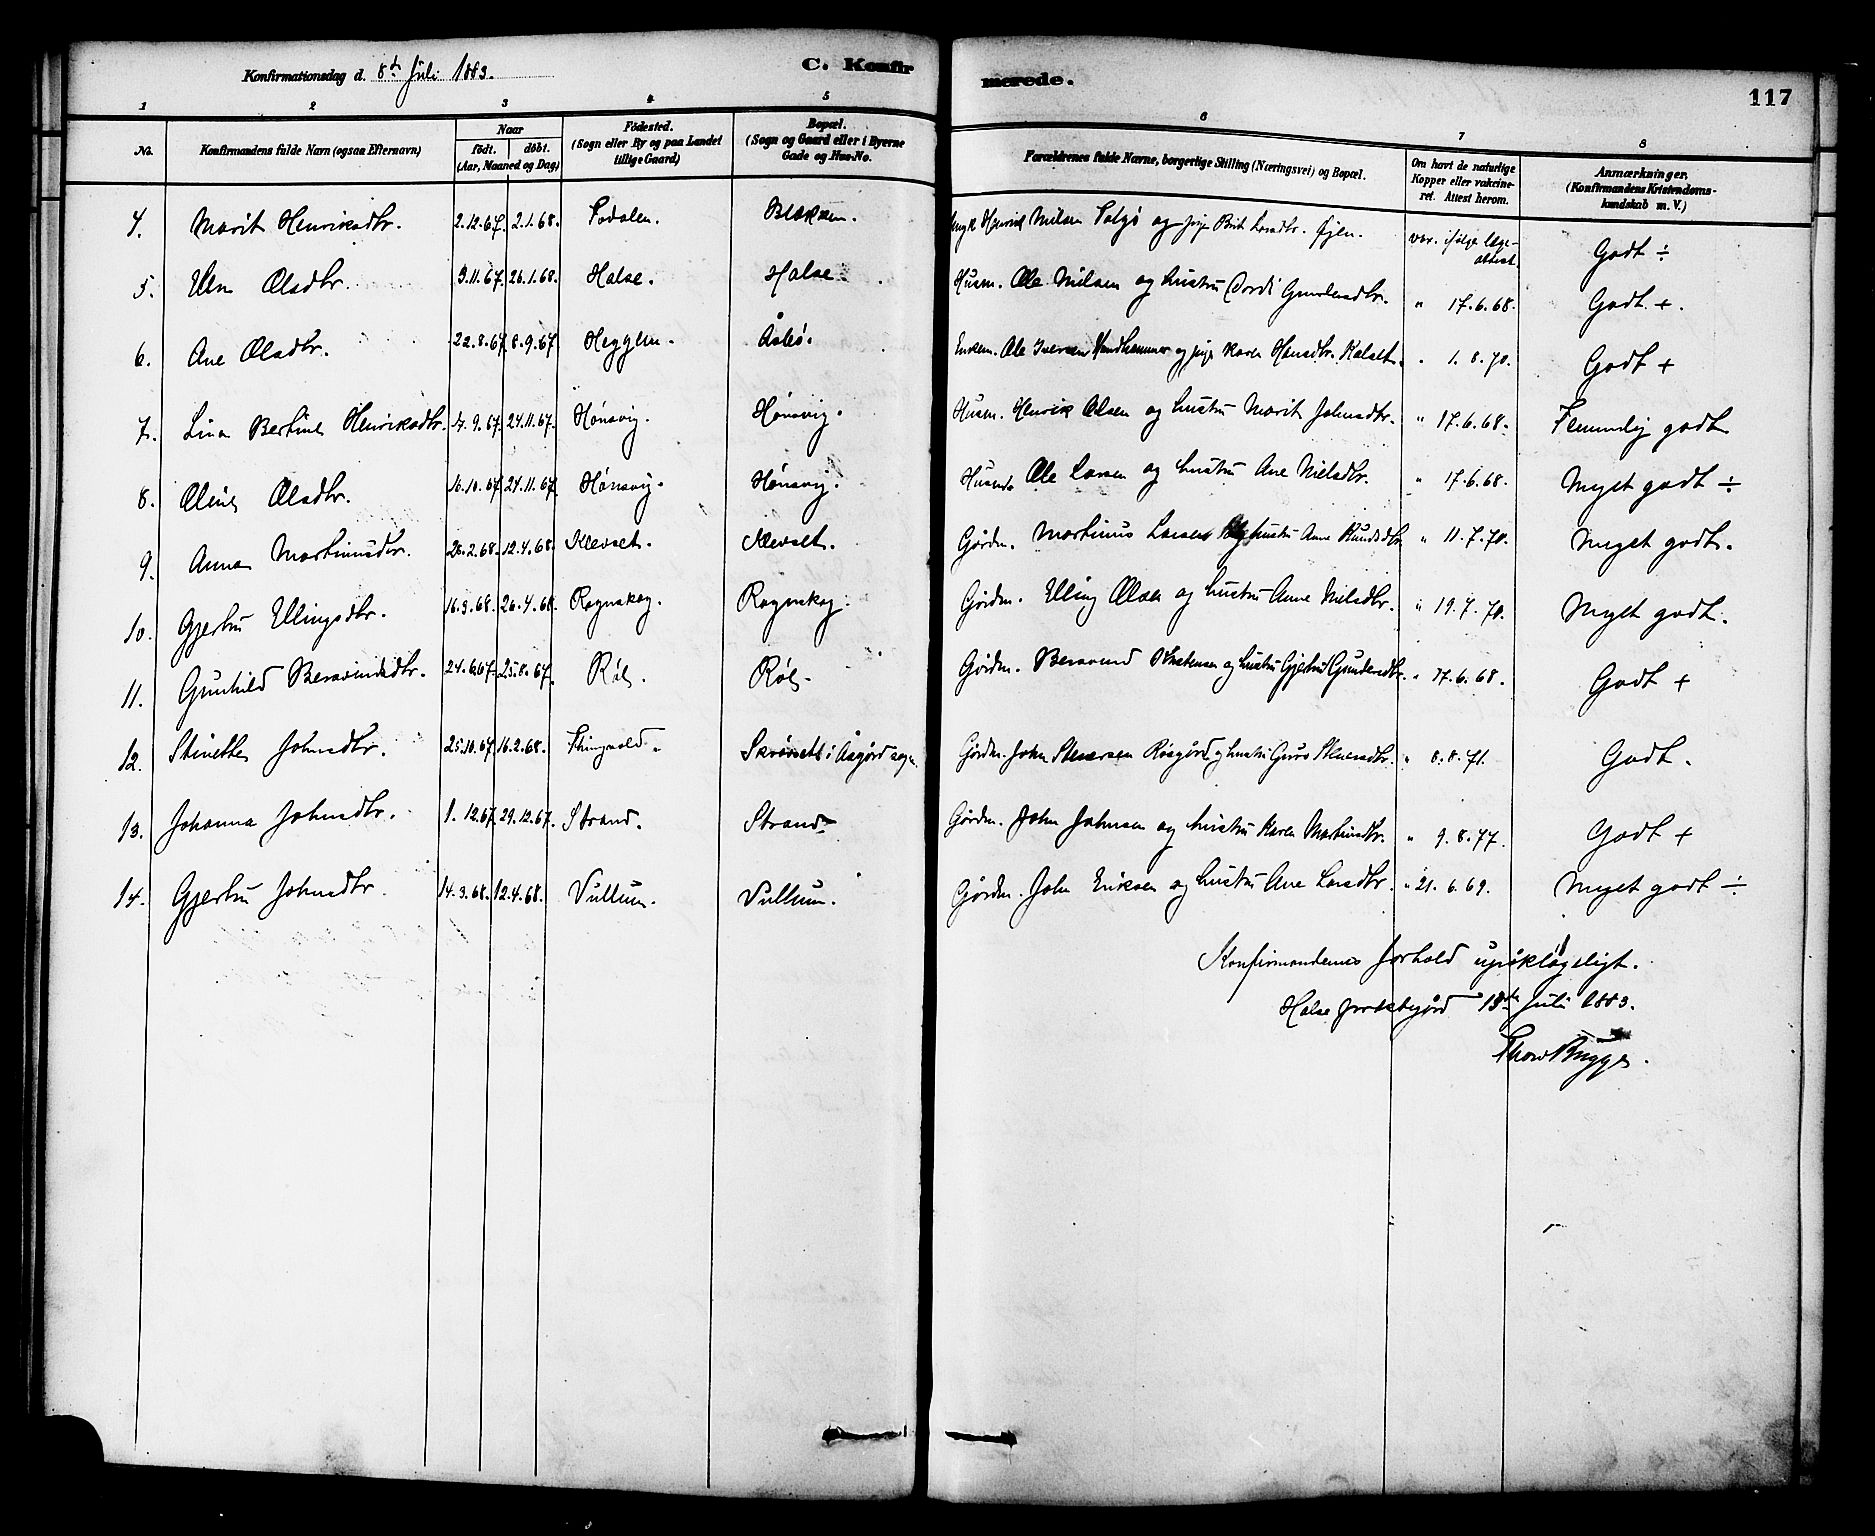 Konfirmationsdag d. 8de Juli 1883.
C. Konfirmerede.
117
1 2 3 4 5 6 7 8
No.
Konfirmandens fulde Navn (ogsaa Efternavn)
Naar
født. døbt.
(Aar, Maaned og Dag)
Fødested.
(Sogn eller By og paa Landet
tillige Gaard)
Bopæl.
(Sogn og Gaard eller i Byerne
Gade og Hus-No.
Forældrenes fulde Navne, borgerlige Stilling (Næringsvei) og Bopæl.
Om havt de naturlige
Kopper eller vakcine-
ret. Attest herom.
Anmærkninger.
(Konfirmandens Kristendoms-
kundskab m. V.)
4. Marit Henriksdtr. 2.12.67. 2.1.68. Todalen. Bløkken. Henrik Nilsen Talgø og Brit Larsdtr. Øjen. vac. ifølge læge-
attest. Godt ÷
5. Elen Olsdtr. 3.11.67. 26.1.68. Halse. Halse. Husm. Ole Nilsen og hustru Dordi Gundersdtr. " 17.6.68. Godt +.
6. Ane Olsdtr. 22.8.67. 8.9.67. Heggem. Åsbø. Enkem. Ole Iversen Vandhammer og pige Karen Hansdtr. Kalset. " 1.8.70. Godt +
7. Lina Bertine Henriksdtr. 14.9.67. 24.11.67. Hønsvig. Hønsvig. Husm. Henrik Olsen og hustru Marit Johnsdtr. " 17.6.68. Temmelig godt
8. Oline Olsdtr. 16.10.67. 24.11.67. Hønsvig. Hønsvig. Husm. Ole Larsen og hustru Ane Nielsdtr. " 17.6.68. Myget godt ÷
9. Anna Martinusdtr. 26.2.68. 12.4.68. Klevset. Klevset. Gårdm. Martinus Larsen og hustru Anne Knudsdtr. " 11.7.70. Myget godt.
10. Gjertru Ellingsdtr. 16.3.68. 26.4.68. Rognskog. Rognskog. Gårdm. Elling Olsen og hustru Anne Nilsdtr. " 19.7.70. Myget godt.
11. Gunhild Bersvendsdtr. 24.6.67. 25.8.67. Røe. Røe. Gårdm. Bersvend og hustru Gjertrud Gundersdtr. " 17.6.68. Godt +
12. Stinette Johnsdtr. 25.10.67. 16.2.68. Thingvold. i Åsgård sogn. Gårdm. John Røsgård og hustru Guro " 8.8.71. Godt.
13. Johanna Johnsdtr. 1.12.67. 29.12.67. Strand. Strand. Gårdm. John Johnsen og hustru Karen Martinsdtr. " 9.8.77. Godt +
14. Gjertru Johnsdtr. 14.3.68. 12.4.68. Vullum. Vullum. Gårdm. John Eriksen og hustru Ane Larsdtr. " 21.6.69. Myget godt ÷
Konfirmandernes forhold upåklageligt.
Halse præstegård 13de Juli 1883.
Bugge.